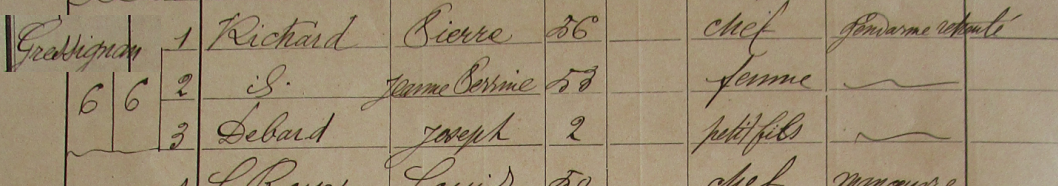 Gressignan 1 Richard Pierre 56 chef gendarme retraité
6 6 2 id. Jeanne Perrine 53 femme
3 Debard Joseph 2 petit fils
Louis 50 chef manœuvre